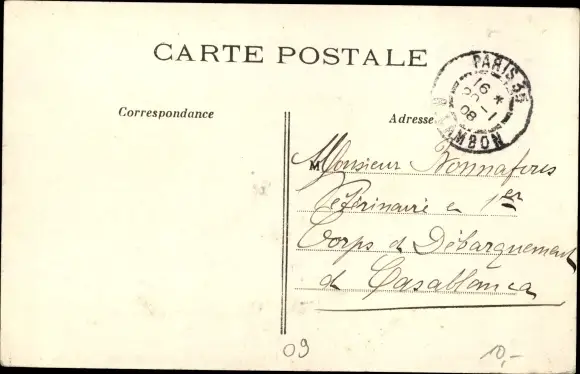 CARTE POSTALE
PARIS 35
16 *
20 - 1
08
R. CAMBON
Correspondance
Adresse
Monsieur Bonnafous
Vétérinaire en 1er
Corps de Débarquement
de Casablanca
09
10,-